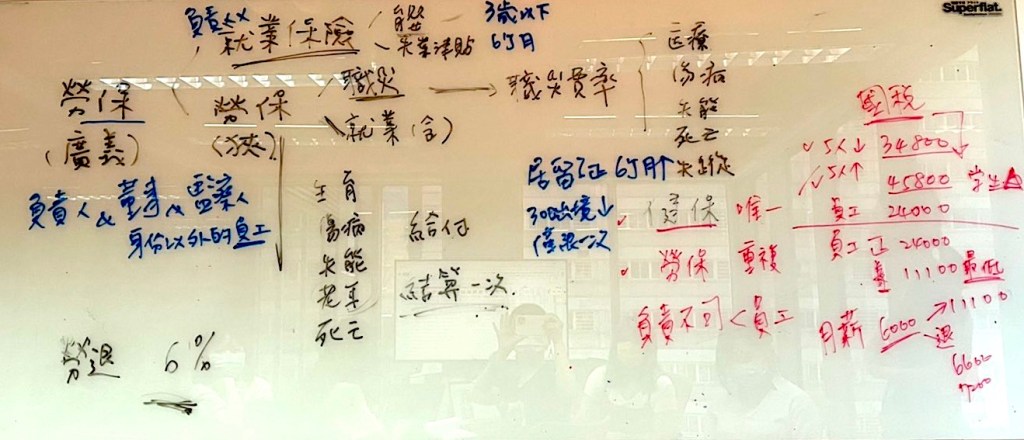 Superflat.
負責人X
就業保險
失業津貼
3歲以下
6個月
勞保
(廣義)
勞保
(狹)
職災
職災費率
就業(含)
醫療
傷病
失能
死亡
失蹤
負責人 & 董事 & 監察人
身份以外的員工
生育
傷病
失能
老年
死亡
給付
結算一次
勞退 6%
居留證 6個月
30出境↓
僅限一次
健保 唯一
勞保 重複
負責不可<員工
國稅
✓5人↓ 34800
✓5人↑ 45800
學生
員工 24000
員工 正 24000
兼 11100 最低
月薪 6000 → 11100
退
6600
7500